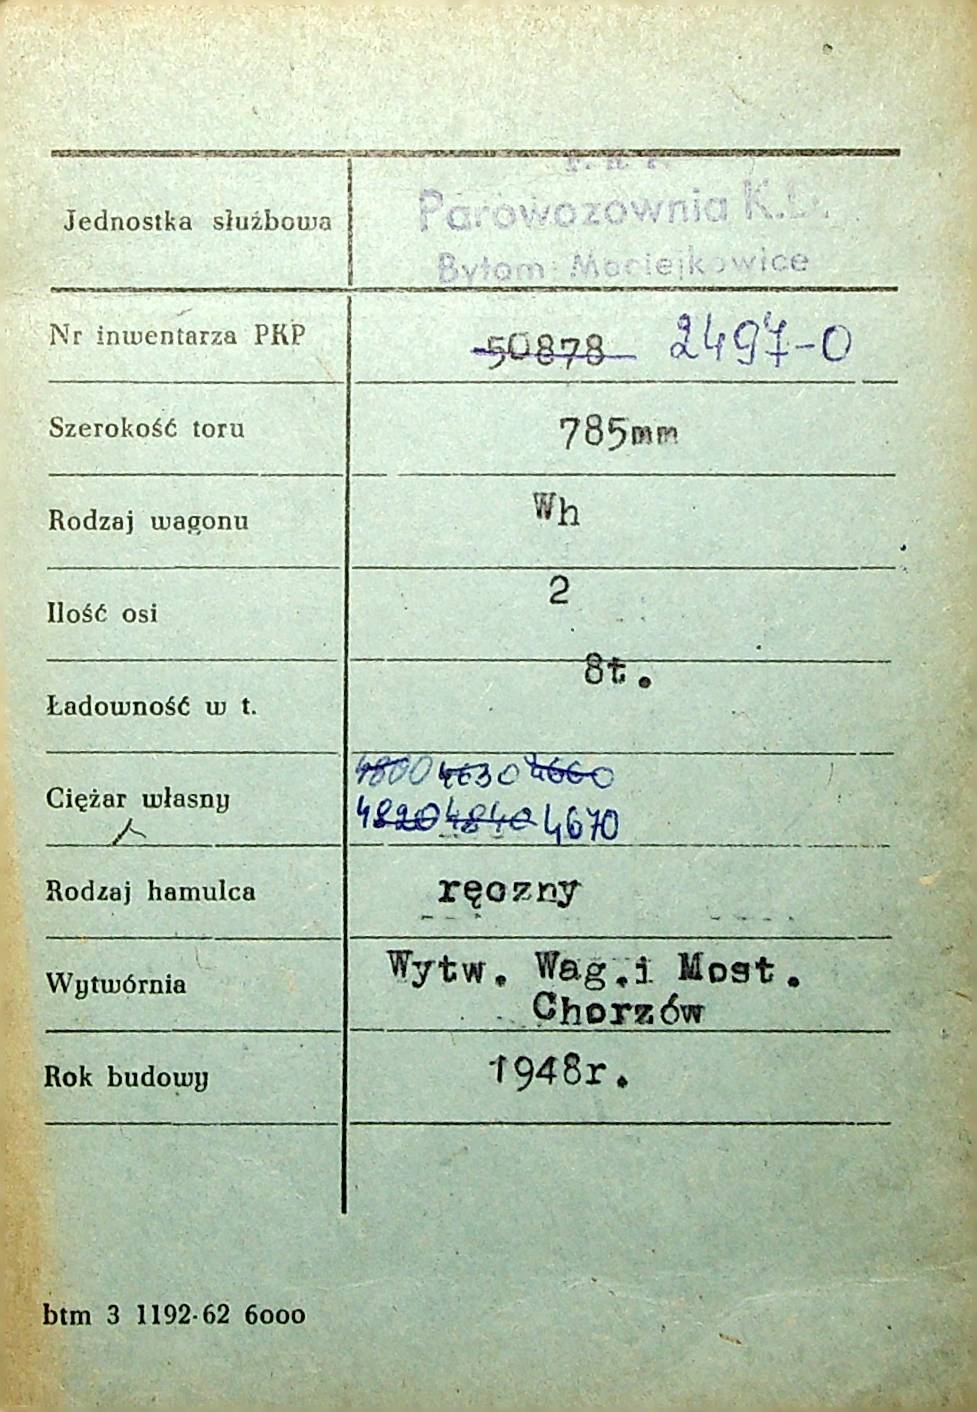 P. K P.
Jednostka służbowa Parowozownia K.D.
Bytom Maciejkowice
Nr inwentarza PKP 50878 2497-0
Szerokość toru 785mm
Rodzaj wagonu Wh
Ilość osi 2
Ładowność w t. 8t.
4800 4630 4660
Ciężar własny 4820 4840 4670
Rodzaj hamulca ręczny
Wytwórnia Wytw. Wag.i Most.
Chorzów
Rok budowy 1948r.
btm 3 1192-62 6000